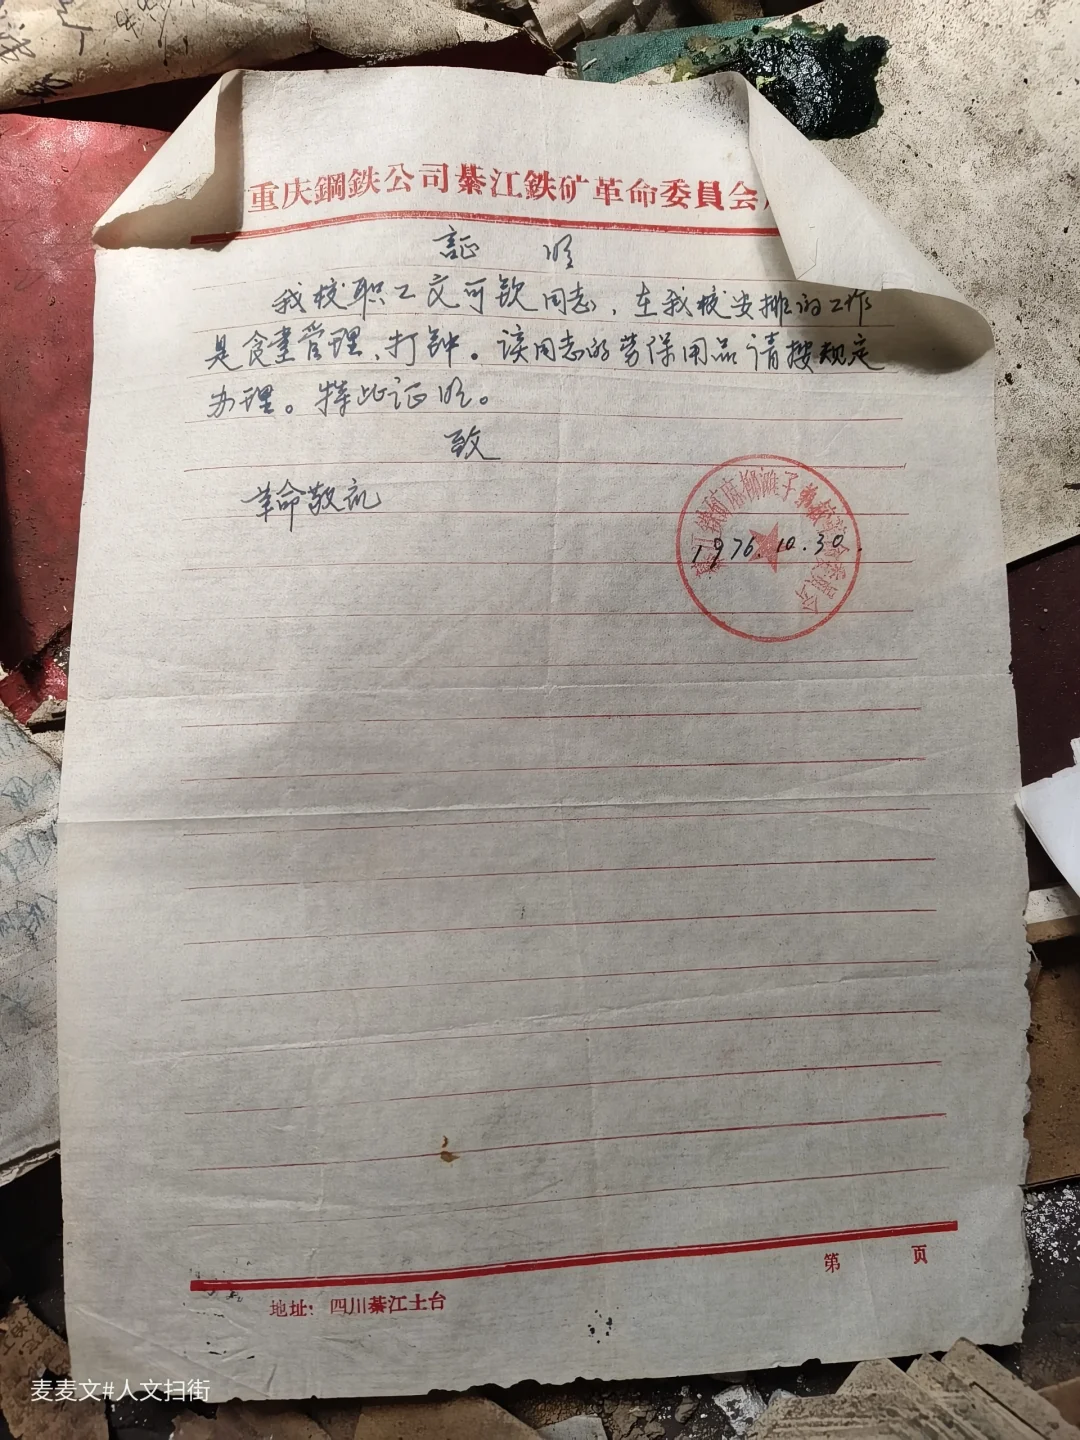 重庆鋼鉄公司綦江鉄矿革命委員会
証 明
我校职工文可钦同志，在我校安排的工作
是食堂管理、打钟。该同志的劳保用品请按规定
办理。特此证明。
致
革命敬礼
1976.10.30.
第 页
地址：四川綦江土台
麦麦文#人文扫街